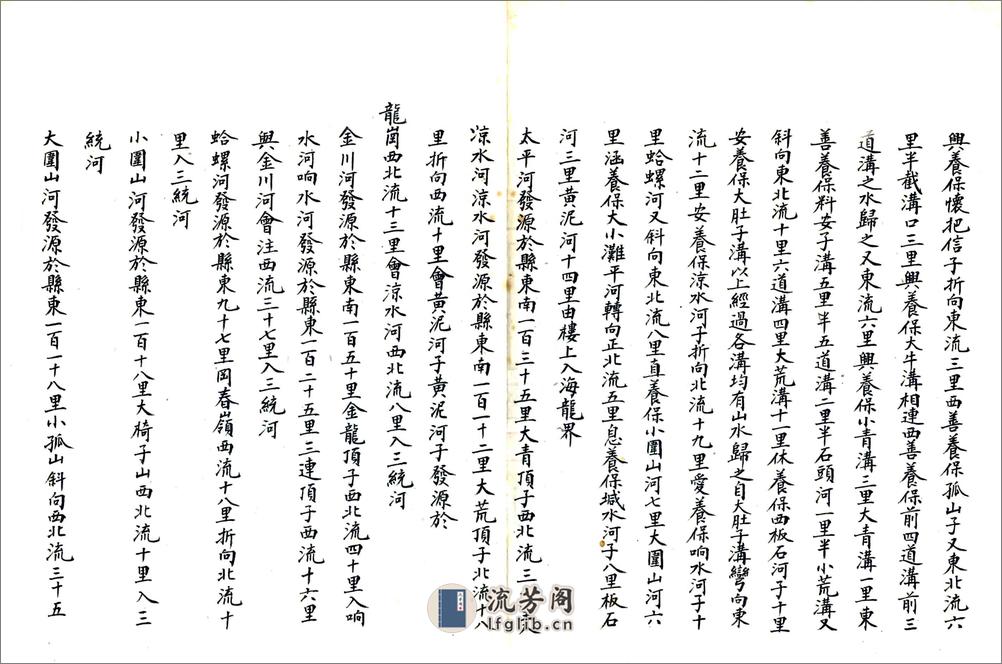 興養保懷把信子折向東流三里西善養保孤山子又東北流六
里半截溝口三里興養保大牛溝相連西善養保前四道溝前三
道溝之水歸之又東流六里興養保小青溝三里大青溝一里東
善養保料安子溝五里半五道溝二里半石頭河一里半小荒溝又
斜向東北流十里六道溝四里大荒溝十一里休養保西板石河子十里
安養保大肚子溝以上經過各溝均有山水歸之自大肚子溝彎向東
流十二里安養保涼水河子折向北流十九里愛養保响水河子十
里蛤螺河又斜向東北流八里直養保小圍山河七里大圍山河六
里涵養保大小灘平河轉向正北流五里息養保堿水河子八里板石
河三里黃泥河十四里由樓上入海龍界
太平河發源於縣東南一百三十五里大青頂子西北流三
涼水河涼水河發源於縣東南一百一十二里大荒頂子北流十八
里折向西流十里會黃泥河子黃泥河子發源於
龍崗西北流十三里會涼水河西北流八里入三統河
金川河發源於縣東南一百五十里金龍頂子西北流四十里入响
水河响水河發源於縣東一百二十五里三連頂子西流十六里
與金川河會注西流三十七里入三統河
蛤螺河發源於縣東九十七里岡春嶺西流十八里折向北流十
里入三統河
小圍山河發源於縣東一百十八里大椅子山西北流十里入三
統河
大圍山河發源於縣東一百一十八里小孤山斜向西北流三十五
流芳阁
lfglib.cn